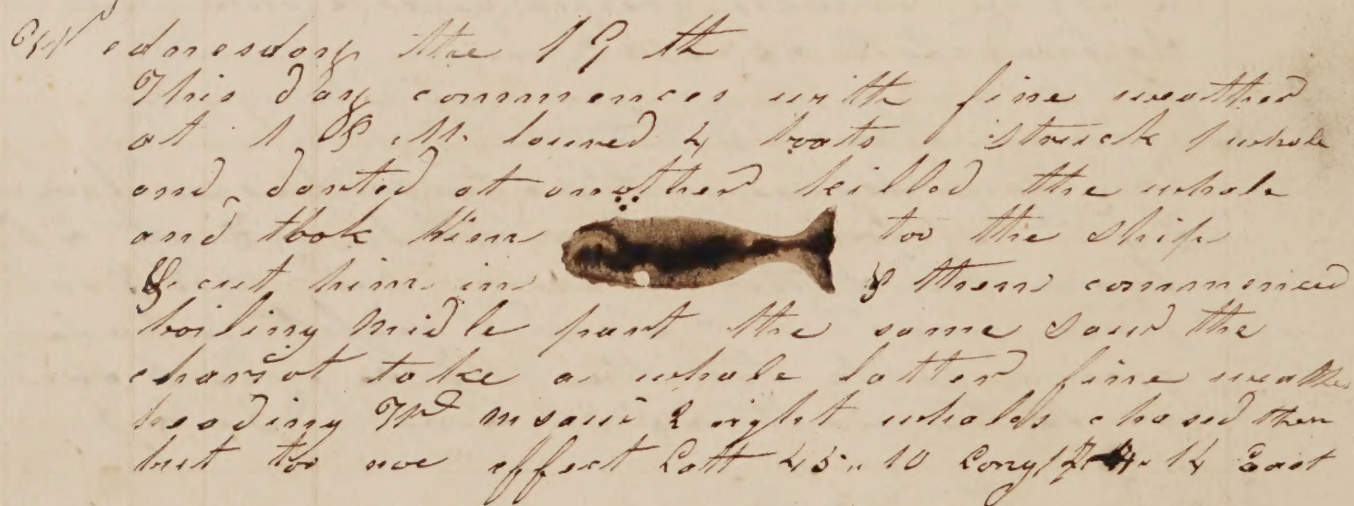 Wednesday the 19th
This day commences with fine weather
at 1 P M. lowred 4 boats struck 1 whale
and darted at another killed the whale
and took him too the ship
& cut him in & then commenced
boiling midle part the same saw the
chariot take a whale latter fine weather
heading Wd saw 2 right whales chased them
but too noe effect Latt 45 " 10 Long 14 East